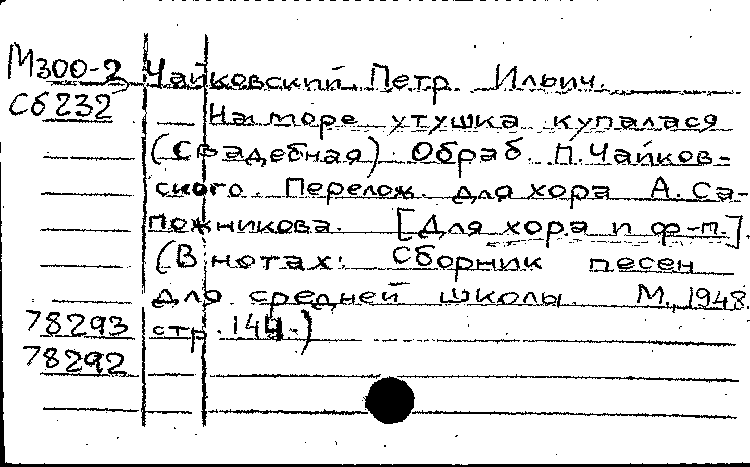 М300-2 Чайковский, Петр Ильич.
Сб232 На море утушка купалася
(Свадебная). Обраб. П. Чайков-
ского. Перелож. для хора А. Са-
пожникова. [Для хора и ф-п.].
(В нотах: Сборник песен
для средней школы. М., 1948.
78293 стр. 144.)
78292